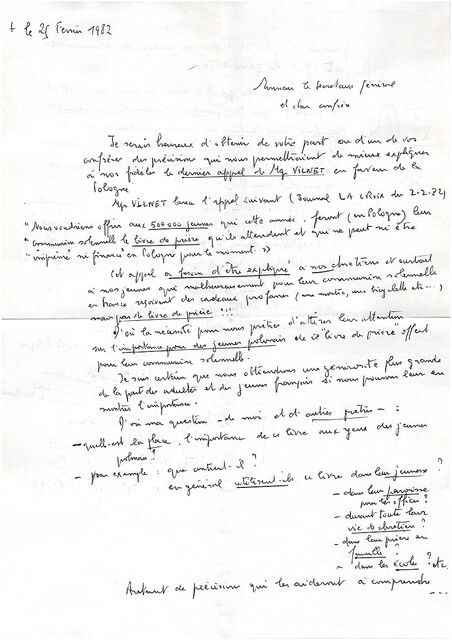 + le 25 Février 1982
Monsieur le Secrétaire Général
et cher confrère
Je serais heureux d'obtenir de votre part ou d'un de vos
confrères des précisions qui nous permettraient de mieux expliquer
à nos fidèles le dernier appel de Mgr VILNET en faveur de la
Pologne
Mgr VILNET lance l'appel suivant (Journal LA CROIX du 2-2-82)
"Nous voudrions offrir aux 500.000 jeunes qui cette année, feront (en Pologne) leur
"communion solennelle le livre de prière qu'ils attendent et qui ne peut ni être
"imprimé ni financé en Pologne pour le moment. »
Cet appel a besoin d'être expliqué à nos chrétiens et surtout
à nos jeunes qui malheureusement pour leur communion solennelle
en France reçoivent des cadeaux profanes (une montre, une bicyclette etc...)
mais pas de livre de prière !!!
D'où la nécessité pour nous prêtres d'attirer leur attention
sur l'importance pour des jeunes polonais de ce "livre de prière" offert
pour leur communion solennelle.
Je suis certain que nous obtiendrons une générosité plus grande
de la part des adultes et des jeunes français si nous pouvons leur en
montrer l'importance.
D'où ma question - de moi et d'autres prêtres - :
- quelle est la place, l'importance de ce livre aux yeux des jeunes
polonais ?
- par exemple : que contient-il ?
en général utilisent-ils ce livre dans leur jeunesse ?
- dans leur paroisse
pour les offices ?
- durant toute leur
vie de chrétien ?
- dans leur prière en
famille ?
- dans les écoles ? etc.
Autant de précisions qui les aideront à comprendre
...